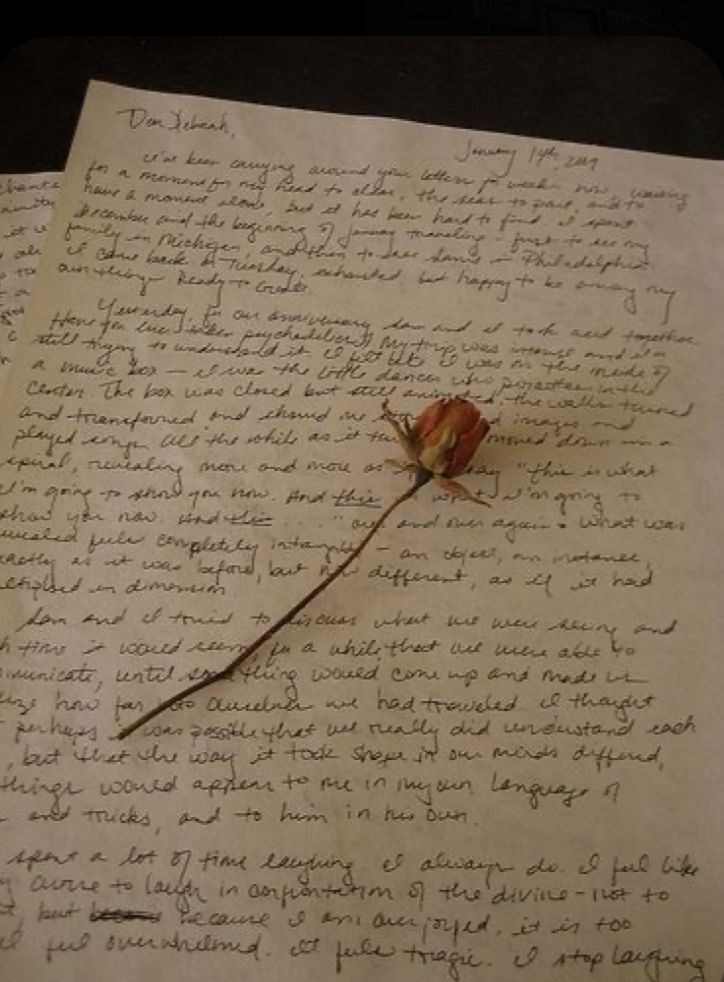 Dear Deborah,
January 14th,
I've been carrying around your letters for weeks now, waiting
for a moment for my head to clear, the seas to part, and to
have a moment alone, but it has been hard to find. I spent
December and the beginning of January traveling - first to see my
family in Michigan, and then to see Sam's in Philadelphia.
I came back on Tuesday, exhausted but happy to be among my
own things. Ready to create.
Yesterday, for our anniversary Sam and I took acid together.
Have you ever taken psychedelics? My trip was intense and I'm
still trying to understand it. I felt like I was on the inside of
a music box - I was the little dancer who in the
center. The box was closed but still animated. the walls turned
and transformed and showed me and images and
played songs. All the while as it moved down in a
spiral, revealing more and more as say "this is what
I'm going to show you now. And this is what I'm going to
show you now. And this ...." over and over again. What was
revealed feels completely - an object, an instance,
exactly as it was before, but now different, as if it had
in dimension.
Sam and I tried to discuss what we were seeing and
time it would seem, for a while, that we were able to
communicate, until something would come up and made us
how far into ourselves we had traveled. I thought
perhaps it was possible that we really did understand each
, but that the way it took shape in our minds differed,
things would appear to me in my own language of
and tricks, and to him in his own.
spent a lot of time laughing. I always do. I feel like
to laugh in confrontation of the divine - not to
, but because I am overjoyed, it is too
feel overwhelmed. It feels tragic. I stop laughing